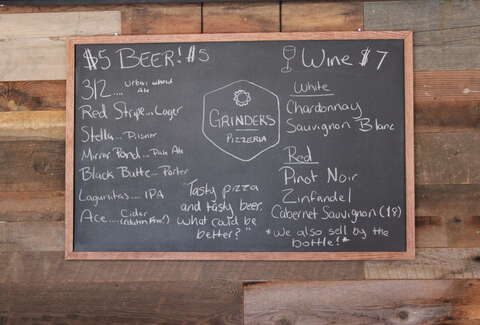 $5 BEER! $5
312.... Urban wheat Ale
Red Stripe... Lager
Stella... Pilsner
Mirror Pond... Pale Ale
Black Butte... Porter
Lagunitas... IPA
Ace.... Cider
(Gluten Free!)
GRINDERS
PIZZERIA
Tasty pizza
and tasty beer.
what could be
better?"
Wine $7
White
Chardonnay
Sauvignon Blanc
Red
Pinot Noir
Zinfandel
Cabernet Sauvignon ($8)
*We also sell by the
bottle!*